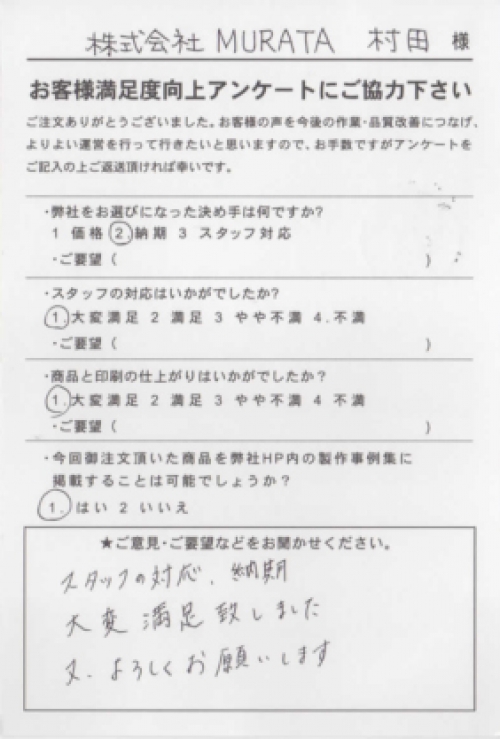 株式会社 MURATA 村田 様
お客様満足度向上アンケートにご協力下さい
ご注文ありがとうございました。お客様の声を今後の作業・品質改善につなげ、
よりよい運営を行って行きたいと思いますので、お手数ですがアンケートを
ご記入の上ご返送頂ければ幸いです。
・弊社をお選びになった決め手は何ですか?
1 価格 2.納期 3 スタッフ対応
・ご要望( )
・スタッフの対応はいかがでしたか?
1.大変満足 2 満足 3 やや不満 4.不満
・ご要望( )
・商品と印刷の仕上がりはいかがでしたか?
1.大変満足 2 満足 3 やや不満 4 不満
・ご要望( )
・今回御注文頂いた商品を弊社HP内の製作事例集に
掲載することは可能でしょうか?
1.はい 2 いいえ
★ご意見・ご要望などをお聞かせください。
スタッフの対応、納期
大変満足致しました
又、よろしくお願いします